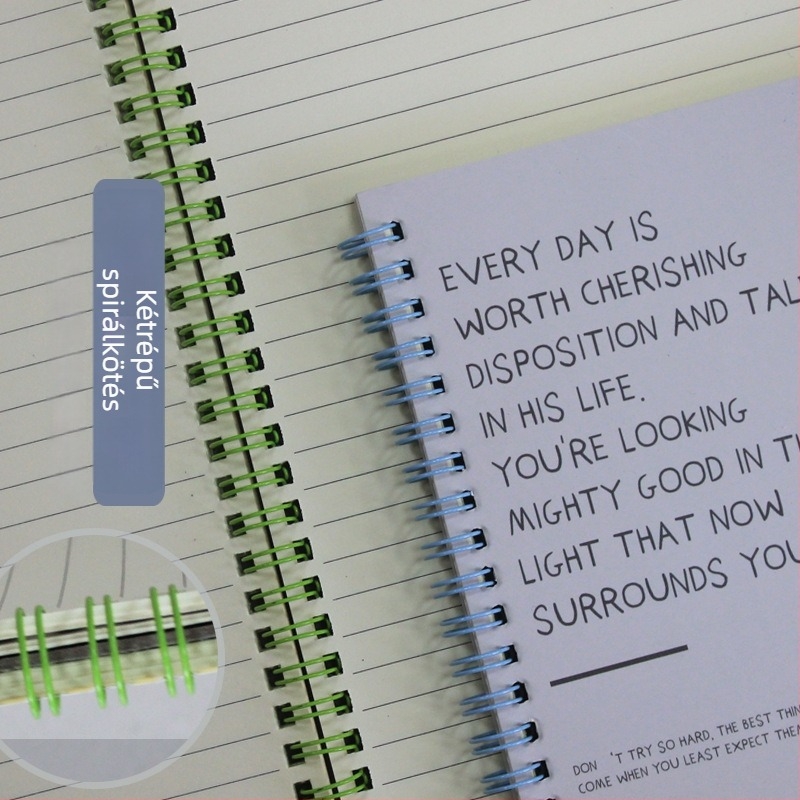 Kétrépű
spirálkötés
EVERY DAY IS
WORTH CHERISHING
DISPOSITION AND
IN HIS LIFE.
YOU'RE LOOKING
MIGHTY GOOD IN
LIGHT THAT NOW
SURROUNDS YOU
DON 'T TRY SO HARD, THE BEST
COME WHEN YOU LEAST EXPECT